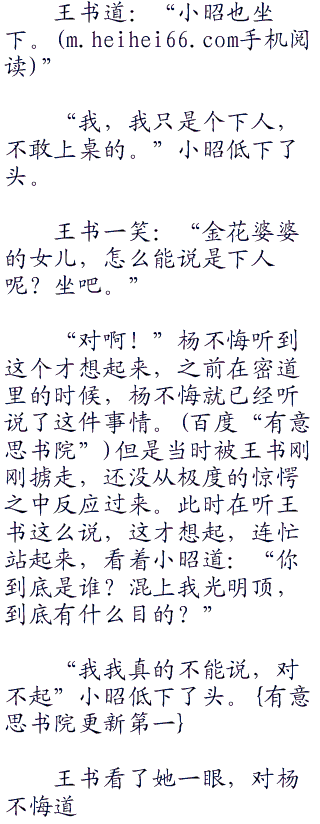 王书道：“小昭也坐
下。(m.heihei66.com手机阅
读)”
“我，我只是个下人，
不敢上桌的。”小昭低下了
头。
王书一笑：“金花婆婆
的女儿，怎么能说是下人
呢？坐吧。”
“对啊！”杨不悔听到
这个才想起来，之前在密道
里的时候，杨不悔就已经听
说了这件事情。(百度“有意
思书院”)但是当时被王书刚
刚掳走，还没从极度的惊愕
之中反应过来。此时在听王
书这么说，这才想起，连忙
站起来，看着小昭道：“你
到底是谁？混上我光明顶，
到底有什么目的？”
“我我真的不能说，对
不起”小昭低下了头。{有意
思书院更新第一}
王书看了她一眼，对杨
不悔道